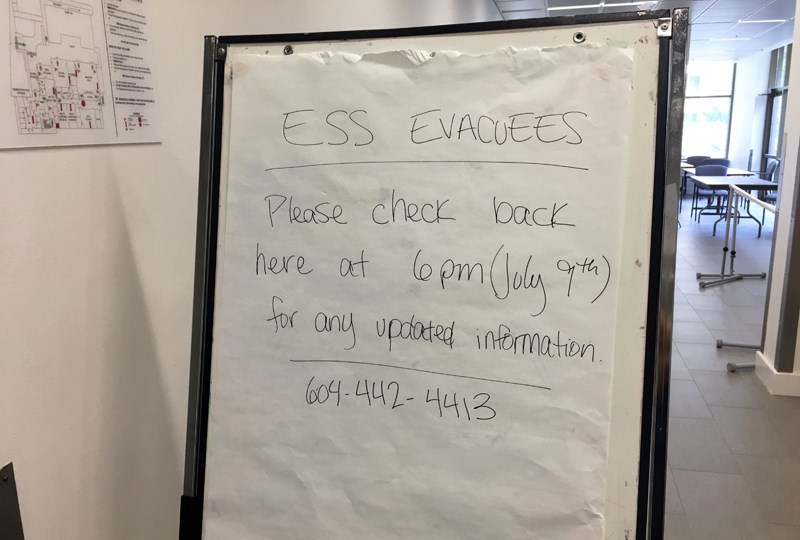 ESS EVACUEES
Please check back
here at 6pm (July 9th)
for any updated information.
604-442-4413